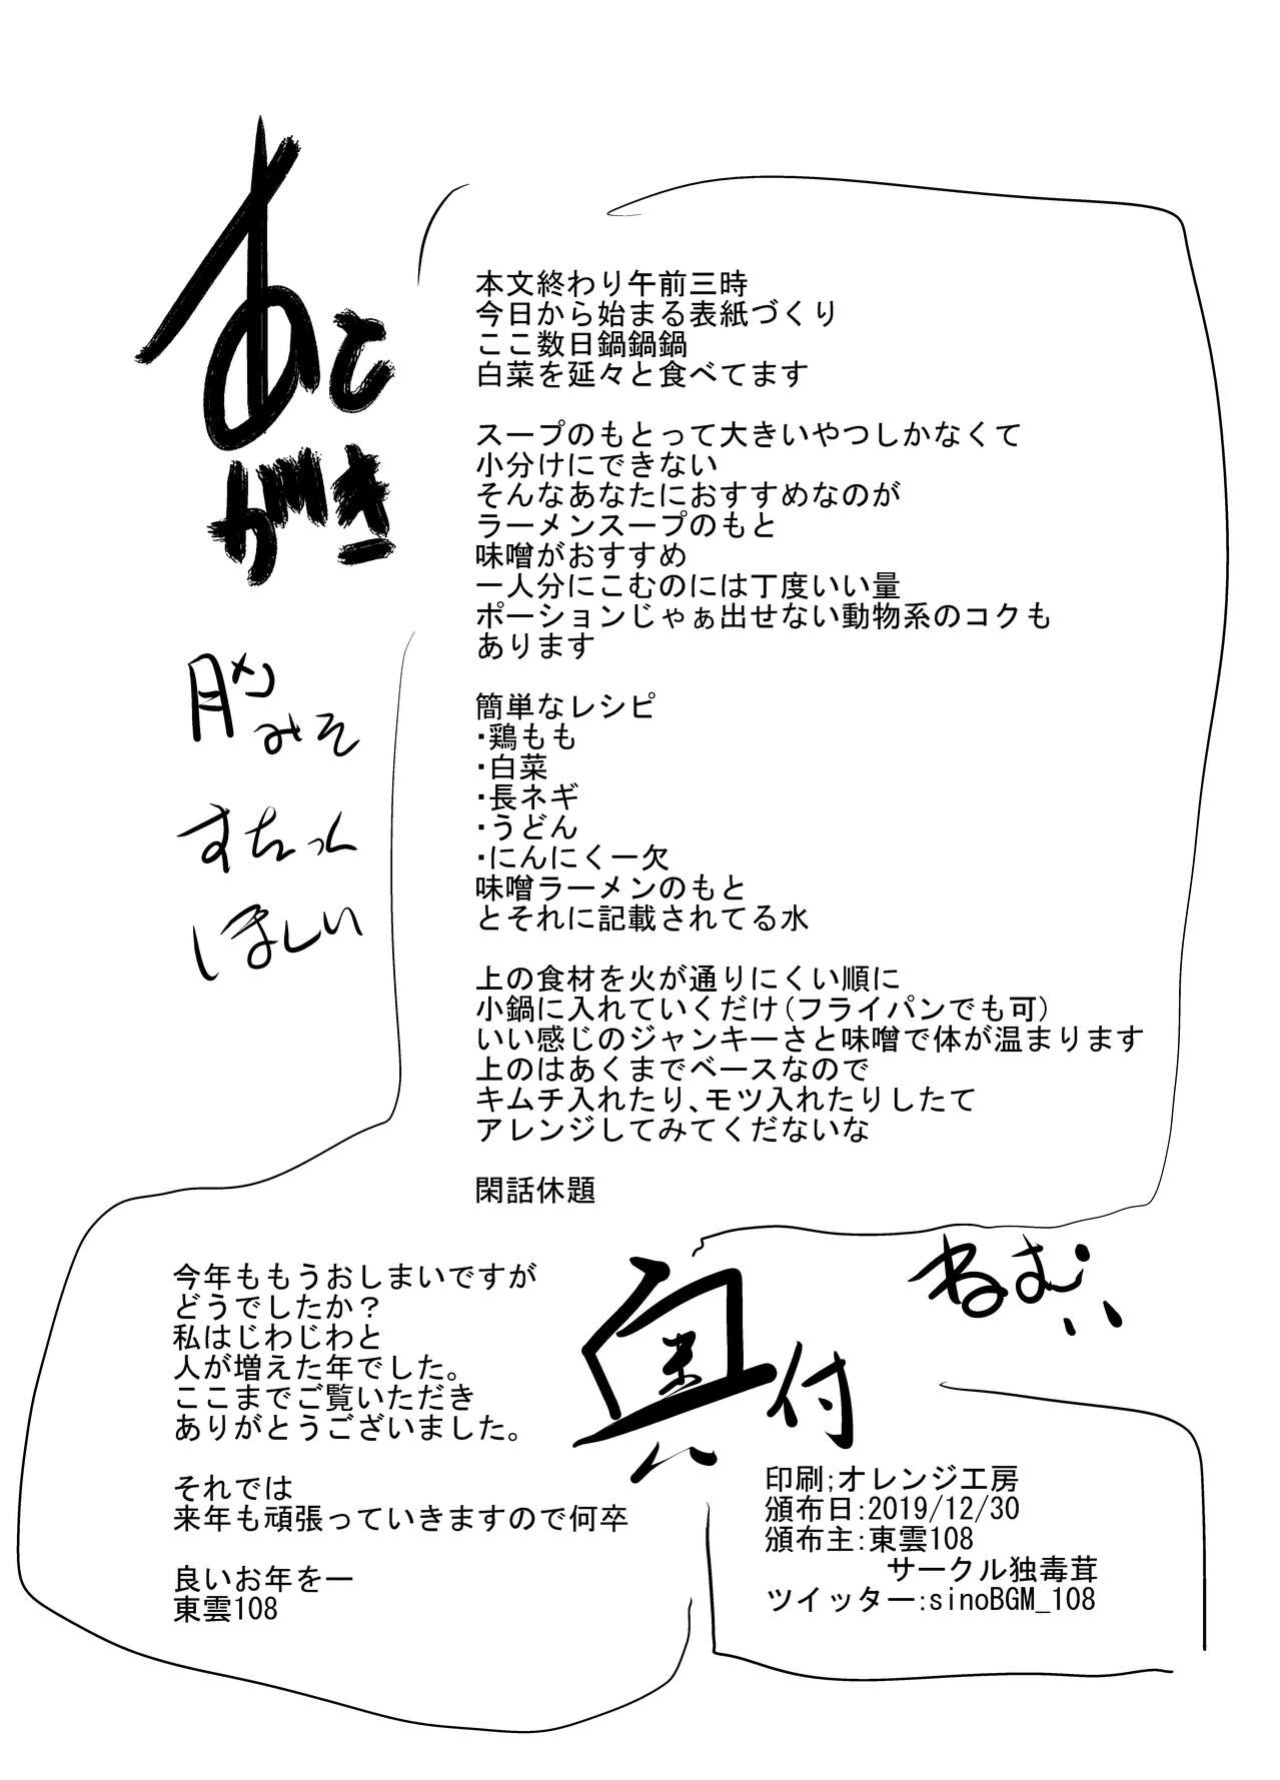 あとがき
本文終わり午前三時
今日から始まる表紙づくり
ここ数日鍋鍋鍋
白菜を延々と食べてます
スープのもとって大きいやつしかなくて
小分けにできない
そんなあなたにおすすめなのが
ラーメンスープのもと
味噌がおすすめ
一人分にこむのには丁度いい量
ポーションじゃぁ出せない動物系のコクも
あります
簡単なレシピ
・鶏もも
・白菜
・長ネギ
・うどん
・にんにく一欠
味噌ラーメンのもと
とそれに記載されてる水
上の食材を火が通りにくい順に
小鍋に入れていくだけ(フライパンでも可)
いい感じのジャンキーさと味噌で体が温まります
上のはあくまでベースなので
キムチ入れたり、モツ入れたりしたて
アレンジしてみてくだないな
閑話休題
みそ
すちっく
ほしい
今年ももうおしまいですが
どうでしたか？
私はじわじわと
人が増えた年でした。
ここまでご覧いただき
ありがとうございました。
それでは
来年も頑張っていきますので何卒
良いお年をー
東雲108
ねむい
奥付
印刷;オレンジ工房
頒布日:2019/12/30
頒布主:東雲108
サークル独毒茸
ツイッター:sinoBGM_108